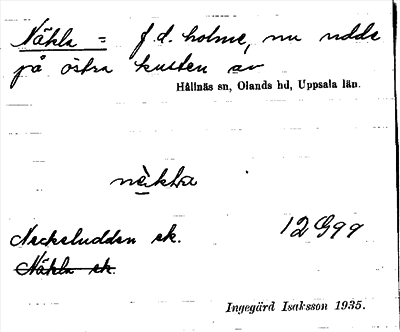 Näkla = f.d. holme, nu udde
på östra kusten av
Hållnäs sn, Olands hd, Uppsala län.
nèkḷa
Neckeludden ek.
12 G 9 9
Näkla ek.
Ingegärd Isaksson 1935.